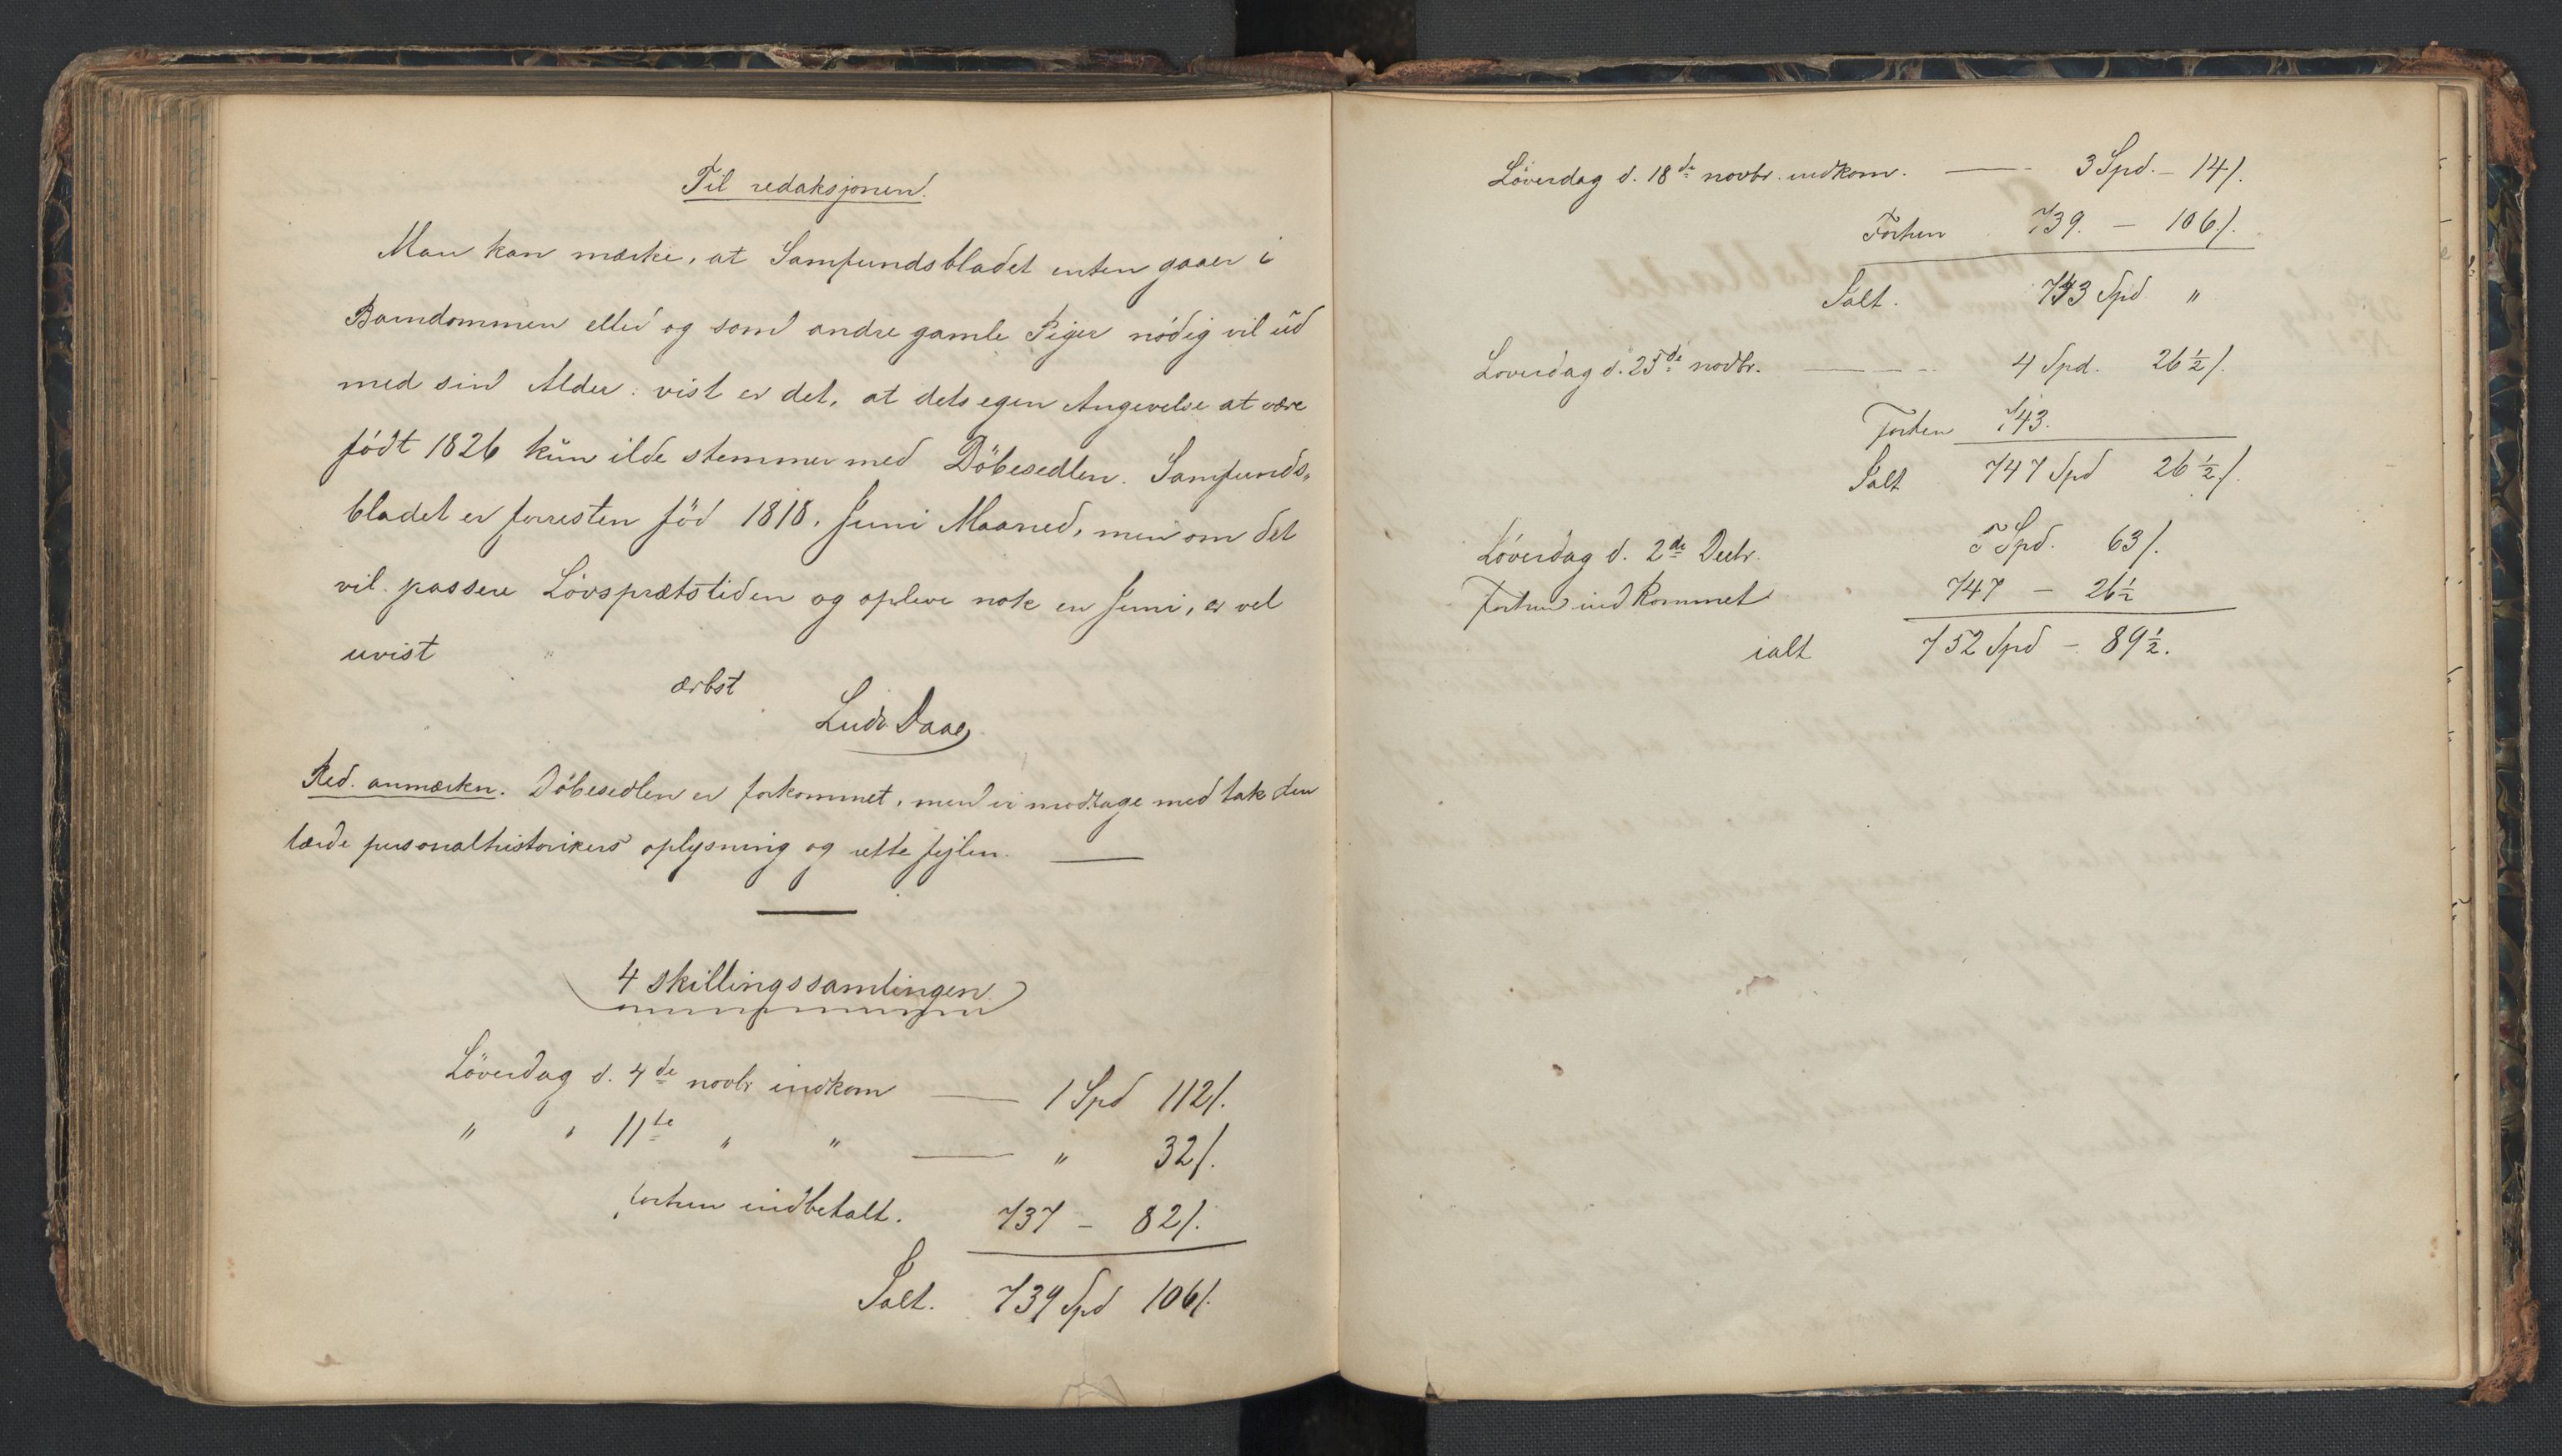 Til redaksjonen.
Man kan mærke, at Samfundsbladet enten gaaer i
Barndommen eller og som andre gamle Piger nödig vil ud
med sin Alder: vist er det, at dets egen Angivelse at være
födt 1826 kun ilde stemmer med Döbesedlen. Samfunds„
bladet er forresten föd 1818, Juni Maaned, men om det
vil passere Lövsprætstiden og opleve nok en Juni, er vel
uvist
ærbst
Ludv. Daae
Red. anmærkn. Döbesedlen er forkommet, men vi modtage med tak den
lærde personalhistorikers oplysning og rette fejlen. —
4 skillingssamlingen
Löverdag d. 4de novbr indkom — 1 Spd 112 s.
" " 11te " " — " 32 s.
forhen indbetalt. 737 - 82 s.
Ialt. 739 Spd 106 s.
Löverdag d. 18de novbr. indkom. — 3 Spd. - 14 s.
Forhen 739. - 106 s.
Ialt. 743 Spd "
Loverdag d. 25de novbr. — 4 Spd. 26½ s.
Forhen 743.
Ialt 747 Spd 26½ s.
Löverdag d. 2de Decbr. 5 Spd. 63 s.
Forhen indkommet 747 - 26½
ialt 752 Spd - 89½.